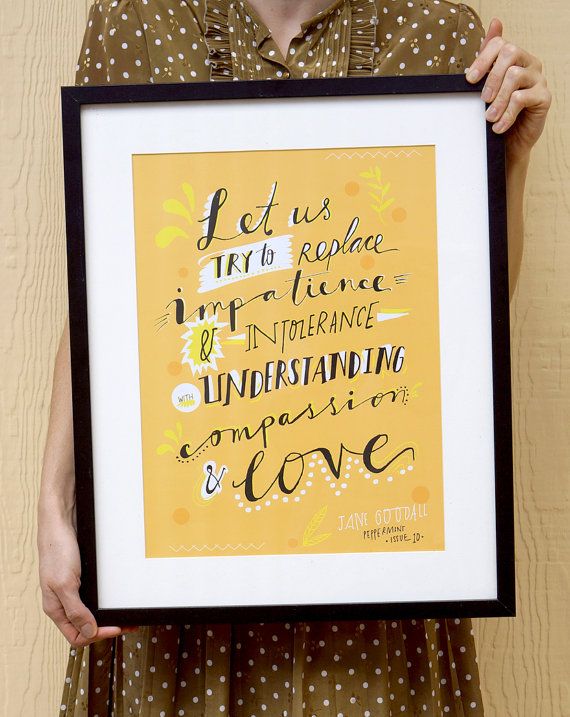 Let us
TRY to replace
impatience
& INTOLERANCE
WITH UNDERSTANDING
compassion
& love
JANE GOODALL
PEPPERMINT
• ISSUE 10 •